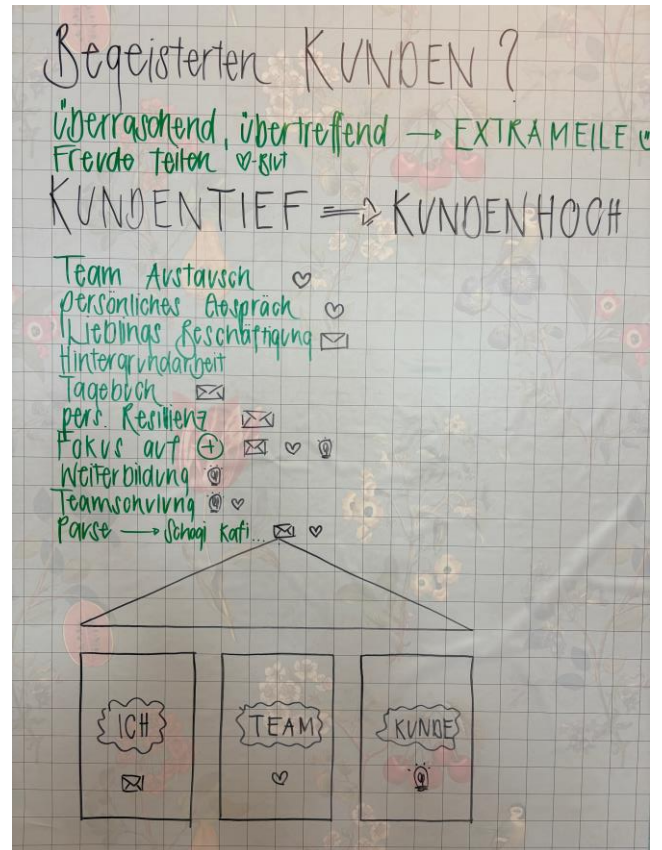 Begeisterten KUNDEN?
überraschend, übertreffend → EXTRAMEILE
Freude teilen ♡-Blut
KUNDENTIEF ⇒ KUNDENHOCH
Team Austausch ♡
persönliches Gespräch ♡
Lieblings Beschäftigung ✉
Hintergrundarbeit
Tagebuch ✉
pers. Resilienz ✉
Fokus auf ⊕ ✉ ♡ 💡
Weiterbildung 💡
Teamschulung 💡 ♡
Pause → Schogi Kafi... ✉ ♡
ICH
TEAM
KUNDE